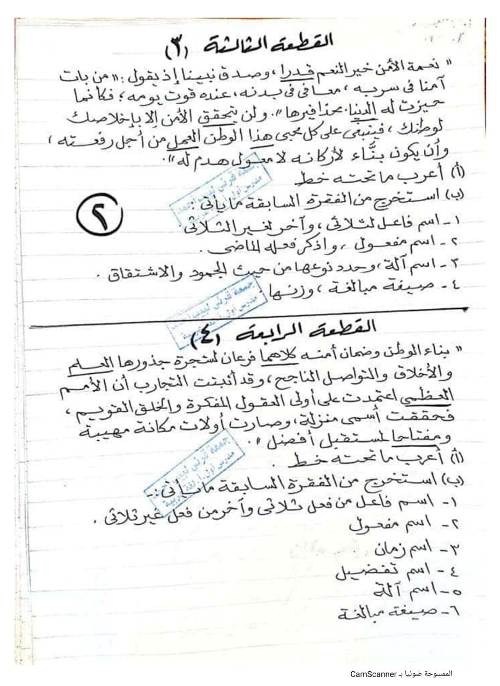 القطعة الثالثة (٣)
" نعمة الأمن خير النعم قدرا ، وصدق نبينا إذ يقول : " من بات
آمنا في سربه ، معافى في بدنه ، عنده قوت يومه ؛ فكأنما
حيزت له الدنيا بحذافيرها " . ولن يتحقق الأمن إلا بإخلاصك
لوطنك ، فينبغي على كل محبي هذا الوطن العمل من أجل رفعته ،
وأن يكون بنَّاء لأركانه لا معول هدم له " .
(أ) أعرب ما تحته خط
(ب) استخرج من الفقرة السابقة ما يأتي :
١- اسم فاعل لثلاثي ، وآخر لغير الثلاثي
٢- اسم مفعول ، واذكر فعله الماضي .
٣- اسم آلة ، وحدد نوعها من حيث الجمود والاشتقاق .
٤- صيغة مبالغة ، وزنها .
٢
القطعة الرابعة (٤)
" بناء الوطن وضمان أمنه كلاهما فرعان لشجرة جذورها العلم
والأخلاق والتواصل الناجح ، وقد أثبتت التجارب أن الأمم
العظمى اعتمدت على أولى العقول المفكرة والخلق القويم ،
فحققت أسمى منزلة ، وصارت أولات مكانة مهيبة
ومفتاحا لمستقبل أفضل " .
(أ) أعرب ما تحته خط .
(ب) استخرج من الفقرة السابقة ما يأتي :-
١- اسم فاعل من فعل ثلاثي وآخر من فعل غير ثلاثي .
٢- اسم مفعول
٣- اسم زمان
٤- اسم تفضيل
٥- اسم آلة
٦- صيغة مبالغة
الممسوحة ضوئيا بـ CamScanner